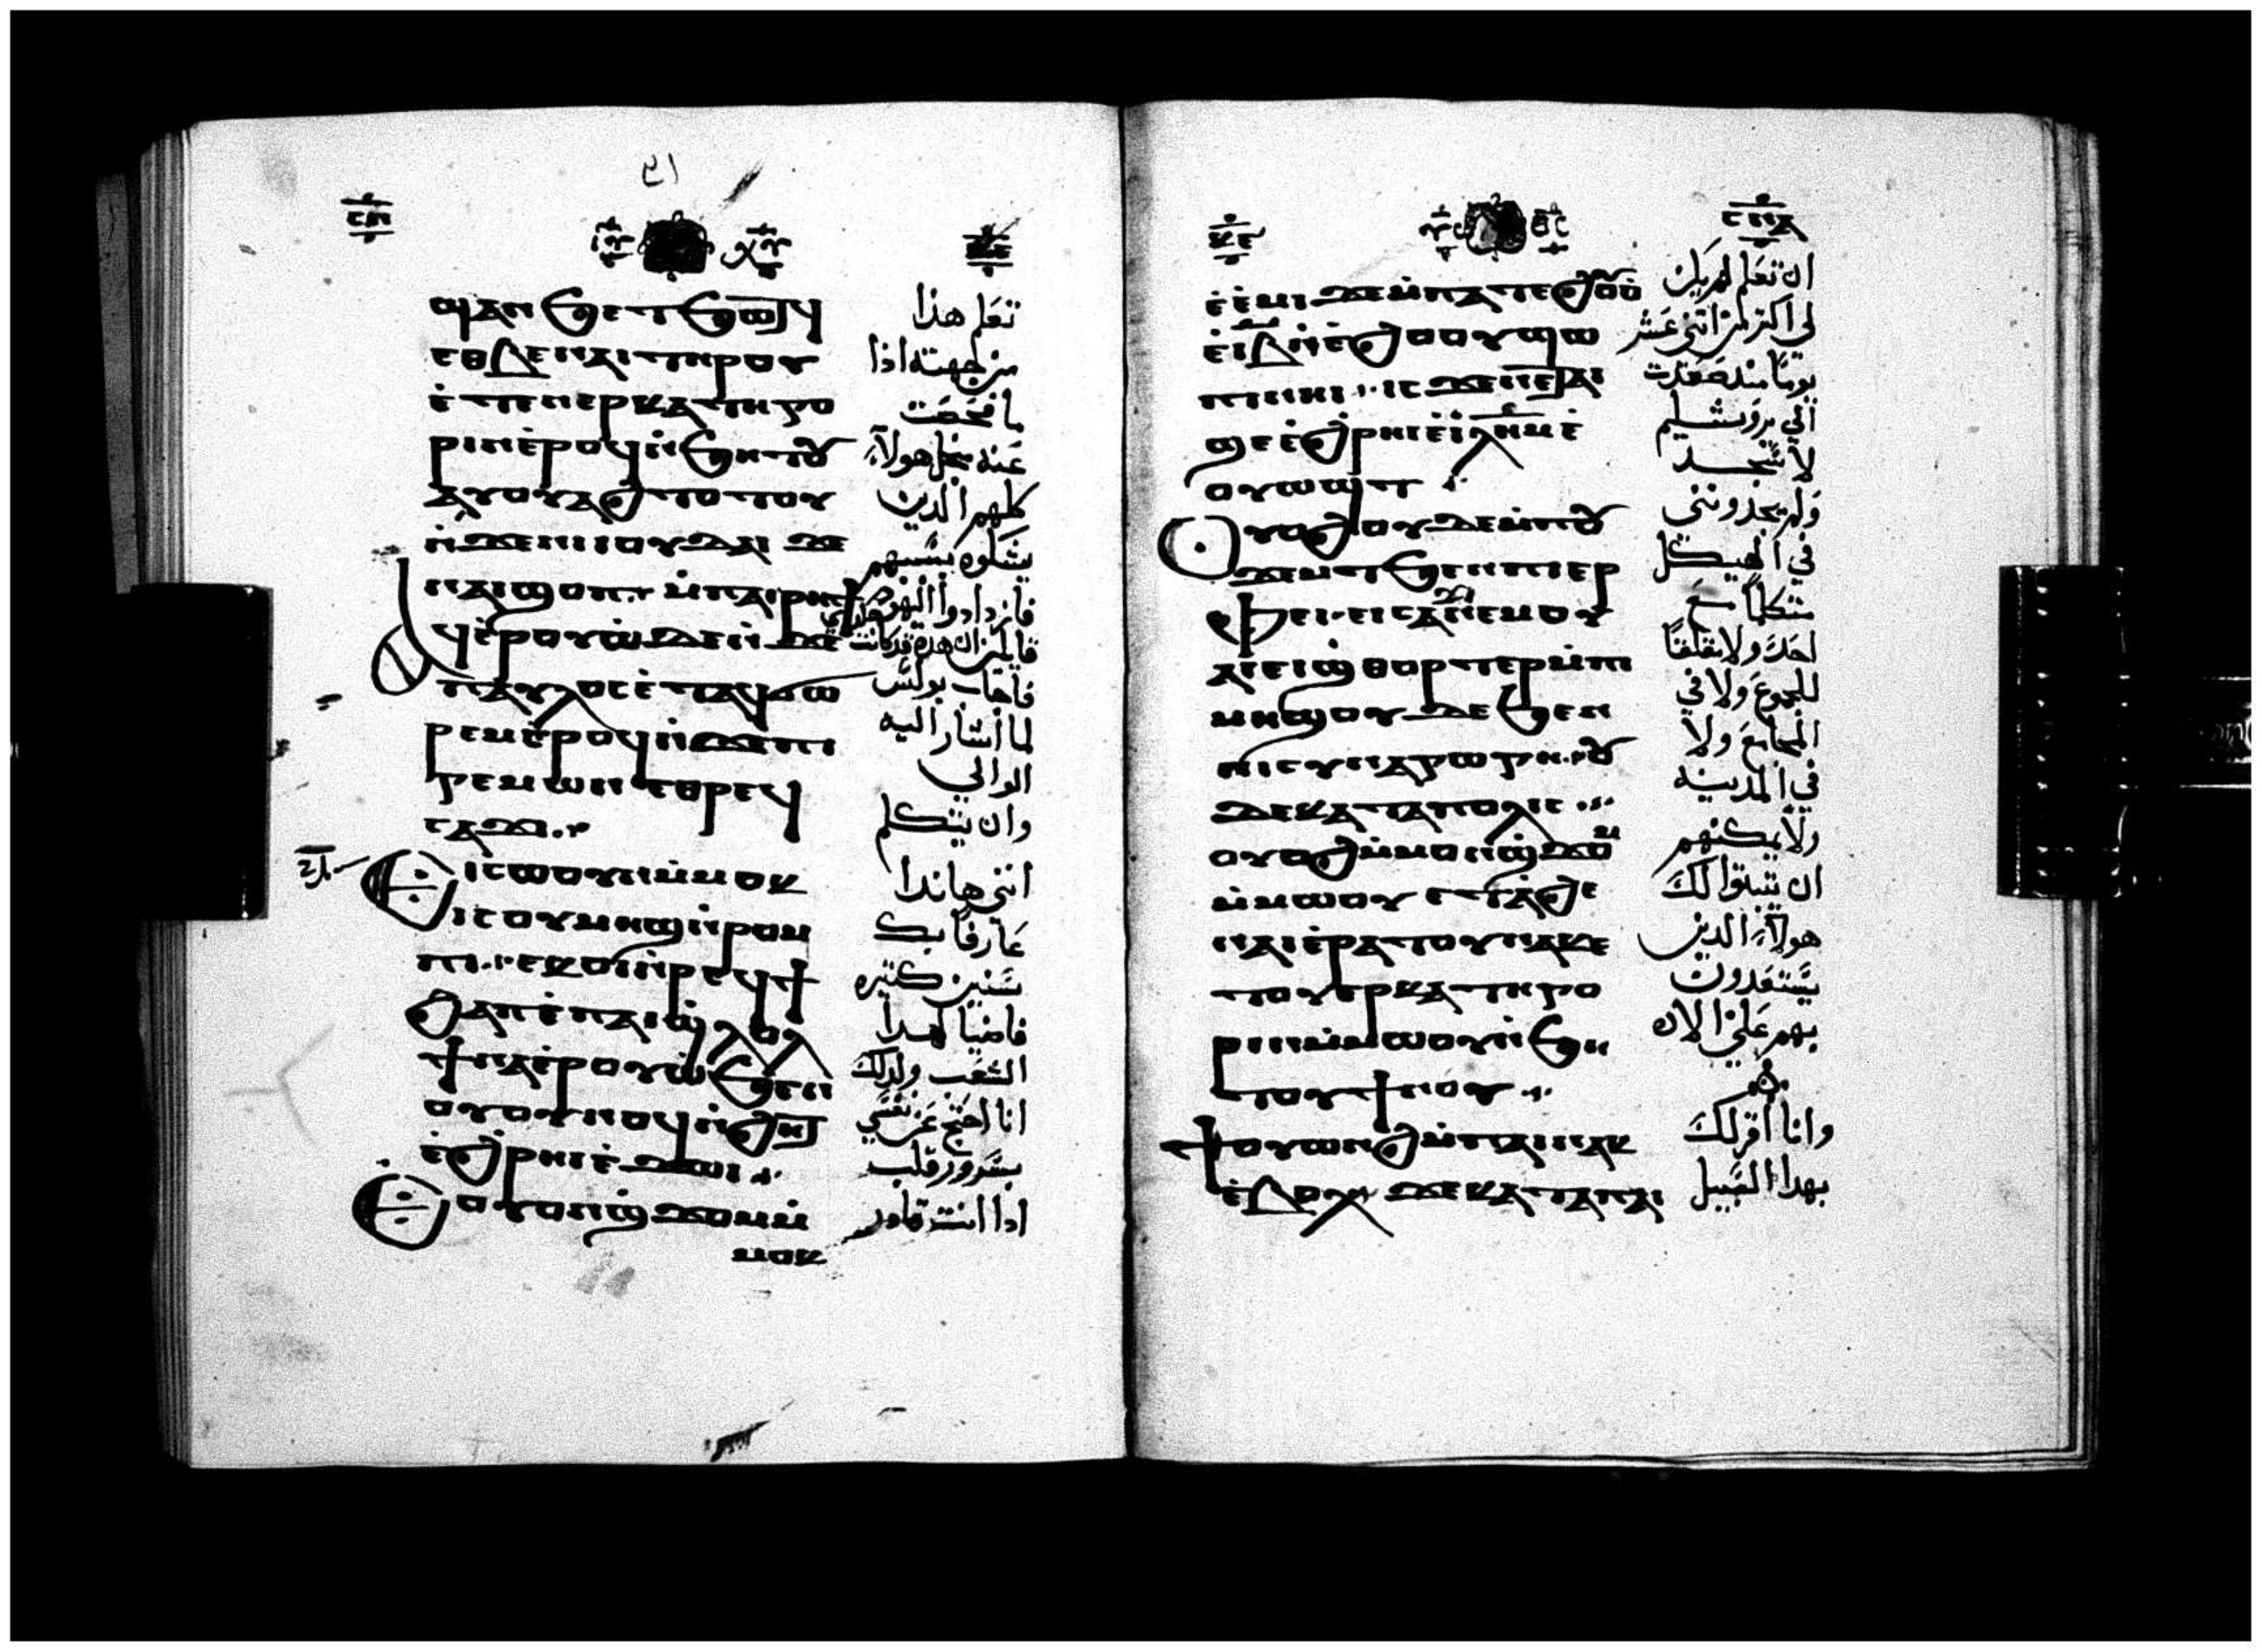 ϣϫⲉⲛϧⲉⲧϧⲱⲧϥ
ⲉⲑⲃⲉⲛⲁⲓⲧⲏⲣⲟⲩ
ⲉ̀ⲧⲉⲛⲉⲣⲕⲁⲧⲏⲅⲟ
ⲣⲓⲛⲉ̀ⲣⲟϥⲛ̀ϧⲏⲧⲟⲩ
ⲁⲩⲟⲩⲁϩⲧⲟⲧⲟⲩ
ⲛ̀ϫⲉⲛⲓⲓⲟⲩⲇⲁⲓ ϫⲉ
ⲛⲁⲓϣⲟⲡ ⲙ̀ⲡⲁⲓⲣⲏϯ
ⲁϥⲉ̀ⲣⲟⲩⲱ̀ ⲛ̀ϫⲉ
ⲡⲁⲩⲗⲟⲥⲉ̀ⲧⲁϥϭⲱ
ⲣⲉⲙⲉ̀ⲣⲟϥⲛ̀ϫⲉⲡⲓ
ϩⲏⲅⲉⲙⲱⲛ ⲉⲑⲣⲉϥ
ⲥⲁϫⲓ
ϯⲥⲱⲟⲩⲛⲙ̀ⲙⲟⲕ
ⲓⲥⲟⲩⲙⲏϣⲛ̀ⲣⲟⲙ
ⲡⲓ ⲉⲕⲟⲓⲛ̀ⲣⲉϥϯ
ϩⲁⲡⲉ̀ⲡⲁⲓϣ̀ⲗⲟⲗ
ϯⲛⲁⲉ̀ⲣⲟⲩⲱ̀ϧⲉⲛ
ⲟⲩⲟⲩⲛⲟϥⲛ̀ϩⲏⲧ
ⲉ̀ϩⲣⲏⲓⲉ̀ϫⲱⲓ
ⲟⲩⲟⲛϣ̀ϫⲟⲙⲙ̀
ⲙⲟⲕ
تعلم هذا
من جهته اذا
ما فحصت
عنه بكل هولآء
كلهم الدين
يشكوه بسببهم
فازدادوا اليهود
قايلين ان هده قد كانت
فاجاب بولس
لما اشار اليه
الوالي
وان يتكلم
انني هاندا
عارفا بك
سنين كتيره
قاضيا لهدا
الشعب ولدلك
انا احتج عن نفسي
بسرور قلب
ادا انت قادر
ⲉ̀ⲉ̀ⲙⲓ ϫⲉⲙ̀ⲡⲁⲧⲉϩⲟⲩⲟ̀
ⲉ̀ⲓⲃⲛ̀ⲉ̀ϩⲟⲟⲩϣⲱ
ⲡⲓⲛⲏⲓ ⲓⲥϫⲉⲛⲉⲧⲁⲓ
ϣⲉⲉ̀ϩⲣⲏⲓⲉ̀ⲓⲗⲏⲙⲉ̀
ⲟⲩⲱϣⲧ
ⲟⲩⲟϩⲟⲩⲇⲉⲙ̀ⲡⲟⲩ
ϫⲉⲙⲧϧⲉⲛⲡⲓⲉⲣ
ⲫⲉⲓ ⲉⲓⲥⲁϫⲓⲛⲉⲙⲟⲩ
ⲁⲓⲉⲓϣ̀ⲑⲟⲣⲧⲉⲣⲙ̀ⲡⲓ
ⲙⲏϣ ⲟⲩⲇⲉϧⲉⲛ
ⲛⲓⲥⲩⲛⲁⲅⲱⲅⲏ ⲟⲩ
ⲇⲉⲕⲁⲧⲁⲡⲟⲗⲓⲥ
ⲟⲩⲟϩⲙ̀ⲙⲟⲛϣ̀ϫⲟⲙ
ⲙ̀ⲙⲱⲟⲩ ⲉⲧⲁϩⲉ
ⲛⲁⲓⲉ̀ⲣⲁⲧⲟⲩⲛⲁⲕ ⲉ
ⲧⲟⲩⲉⲣⲕⲁⲧⲏⲅⲟ
ⲣⲓⲛⲙ̀ⲙⲱⲟⲩⲛ̀ϧⲏ
ⲧⲟⲩϯⲛⲟⲩ
ϯⲟⲩⲱⲛϩⲙ̀ⲡⲁⲓⲛⲁⲕ
ⲉ̀ⲃⲟⲗ ϫⲉⲕⲁⲧⲁⲡⲁⲓ
ان تعلم لم يكن
لي اكتر من اتني عشر
يوما مند صعدت
الي يروشليم
لاسجد
ولم يجدونني
في الهيكل
متكلما مع
احد ولا مقلقا
للجموع ولا في
المجامع ولا
في المدينه
ولا يمكنهم
ان يتبتوا لك
هولآء الدين
يستعدون
بهم علي الان
وانا أقر لك
بهدا السبيل